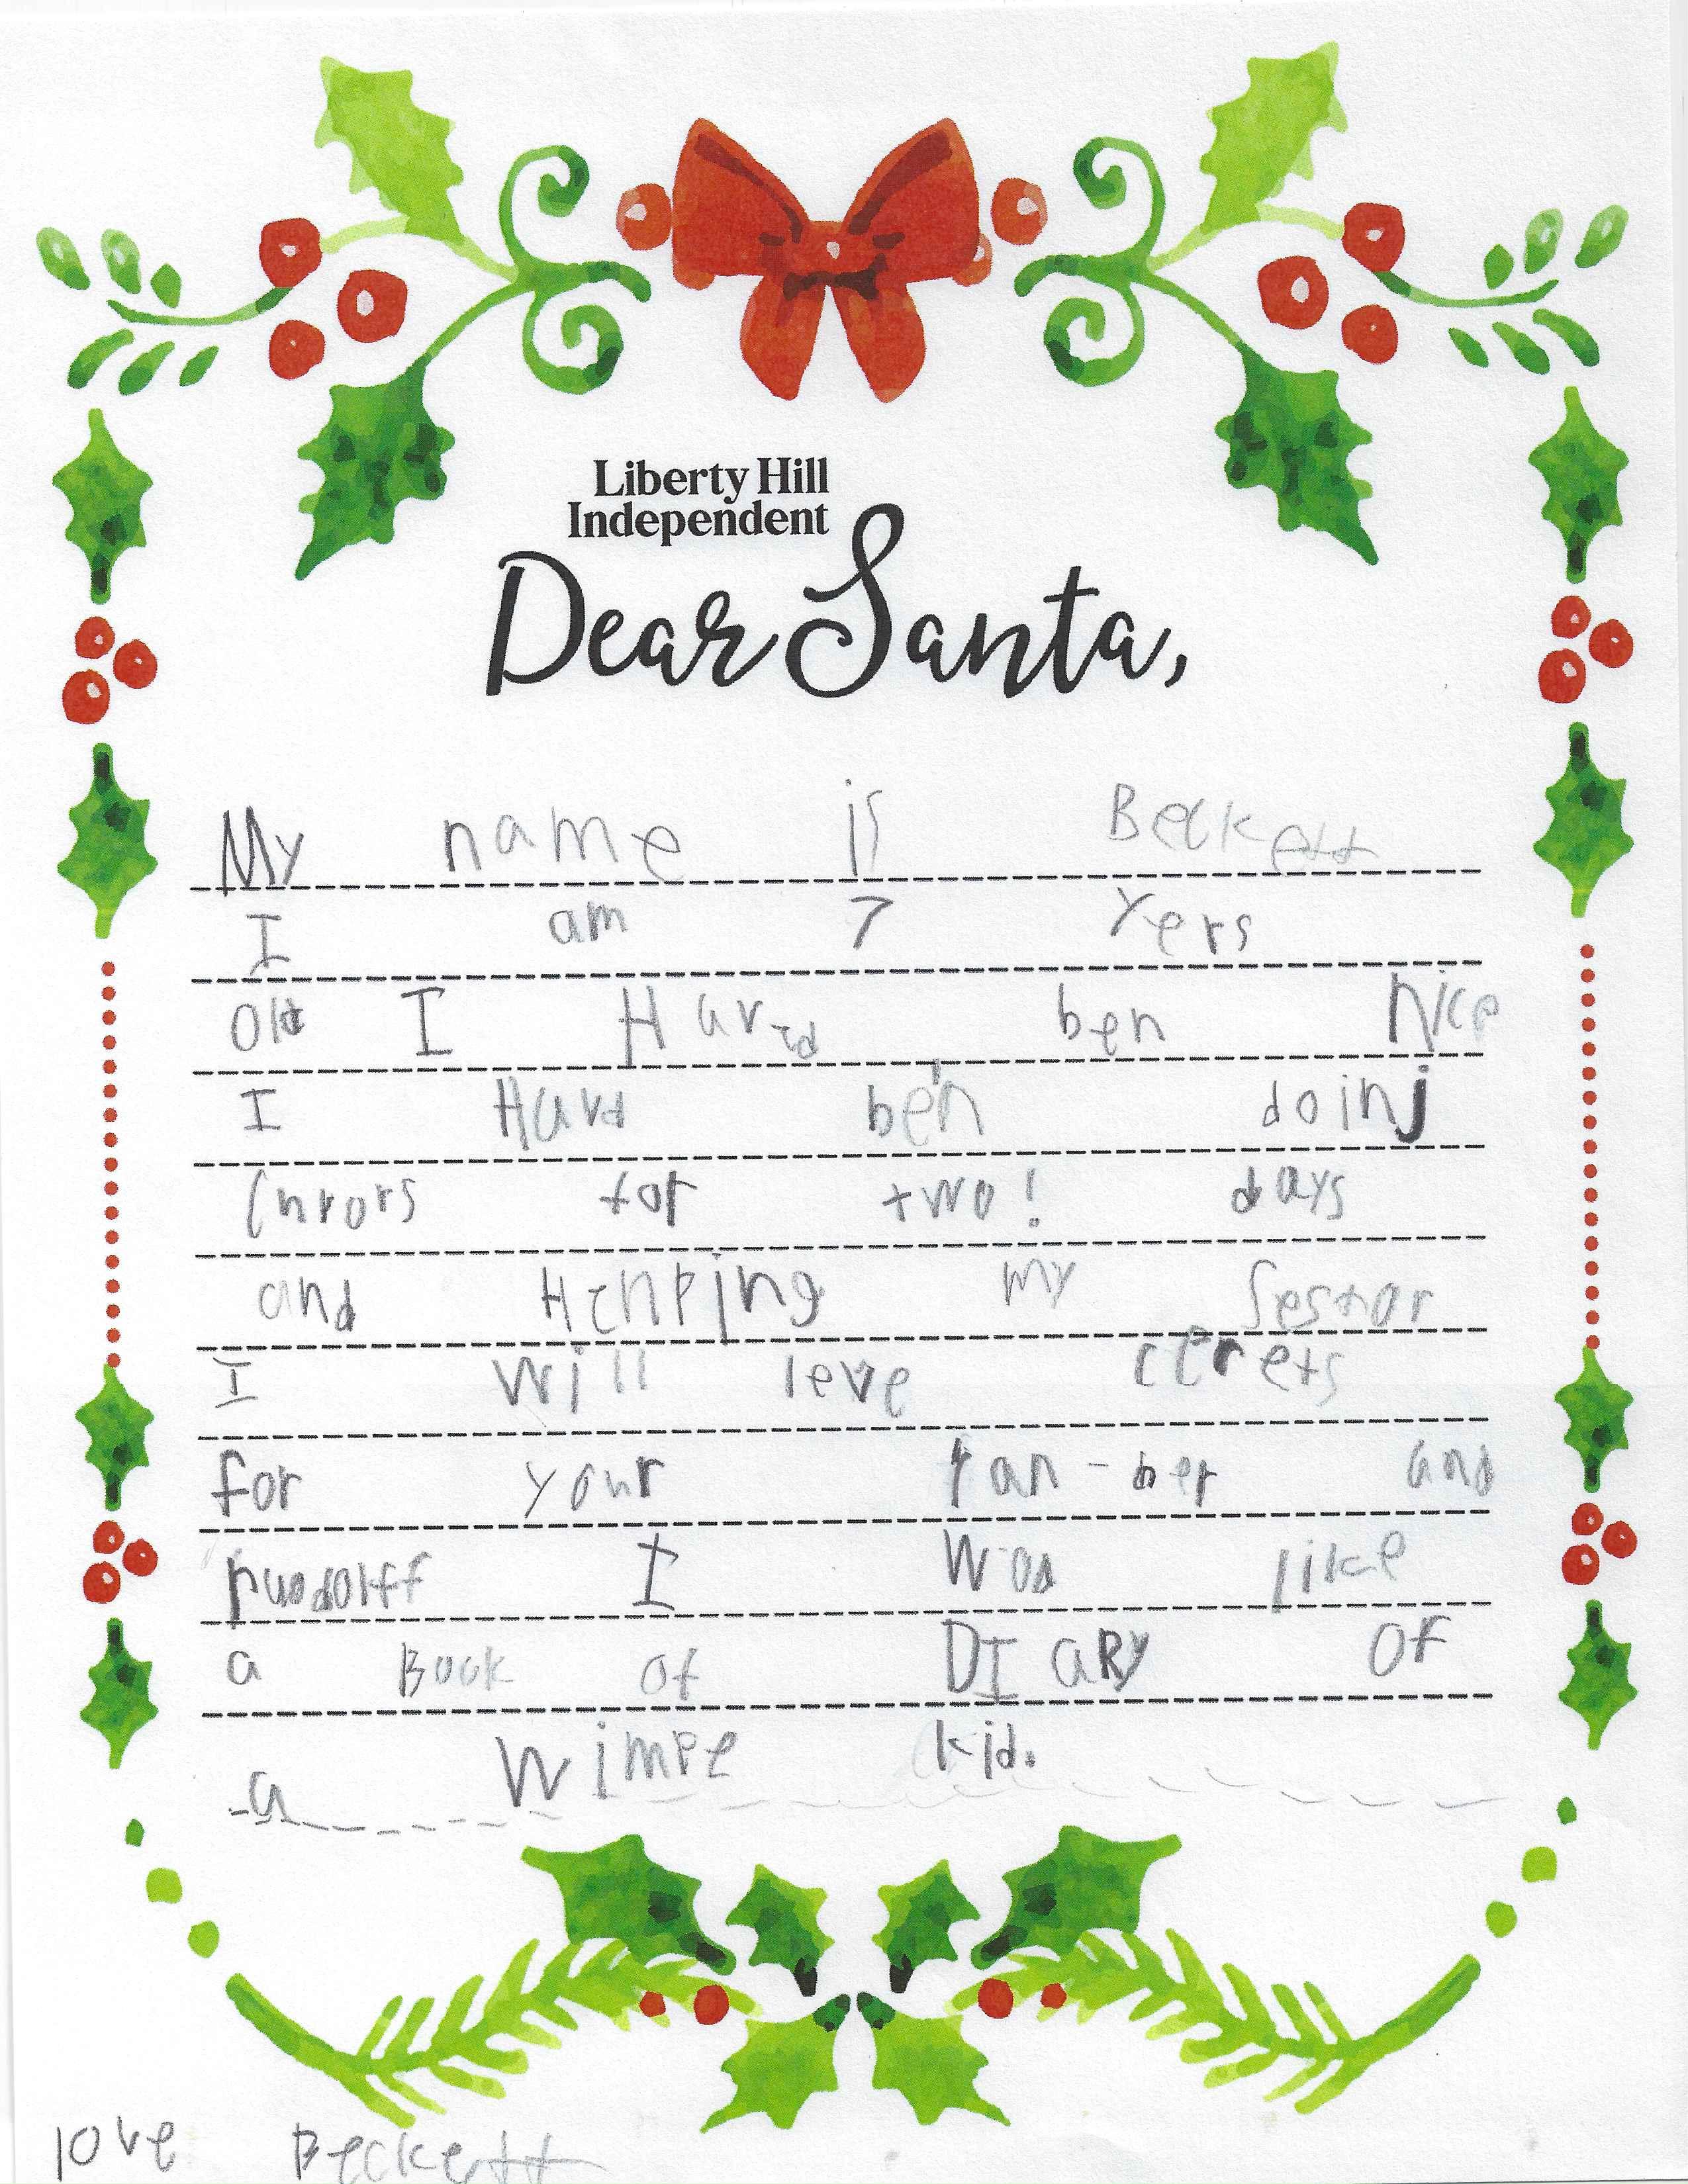 Liberty Hill
Independent
Dear Santa,
My name is Beckett
I am 7 Yers
Old I Haved ben Nice
I Havd ben doinj
Cnrors for two! days
and Henping my Sestor
I Will leve cerets
for your ran-der and
rudolff I Wod like
a Book of DIARY OF
a Wimpe kid.
love Beckett